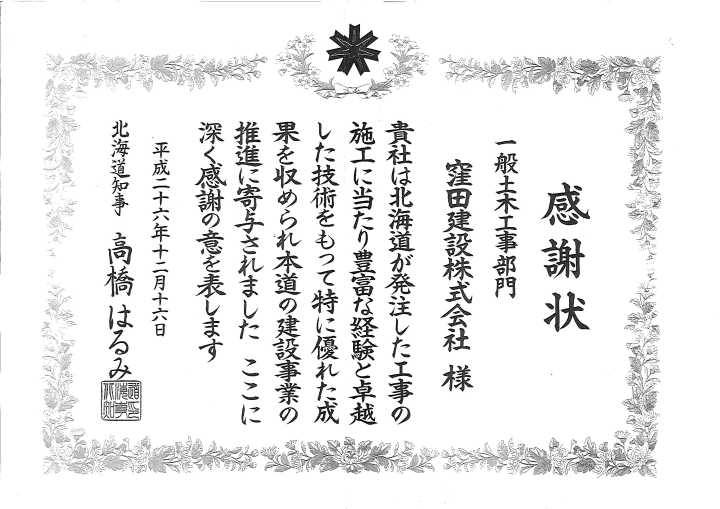 感謝状
一般土木工事部門
窪田建設株式会社 様
貴社は北海道が発注した工事の
施工に当たり豊富な経験と卓越
した技術をもって特に優れた成
果を収められ本道の建設事業の
推進に寄与されました ここに
深く感謝の意を表します
平成二十六年十二月十六日
北海道知事 高橋はるみ